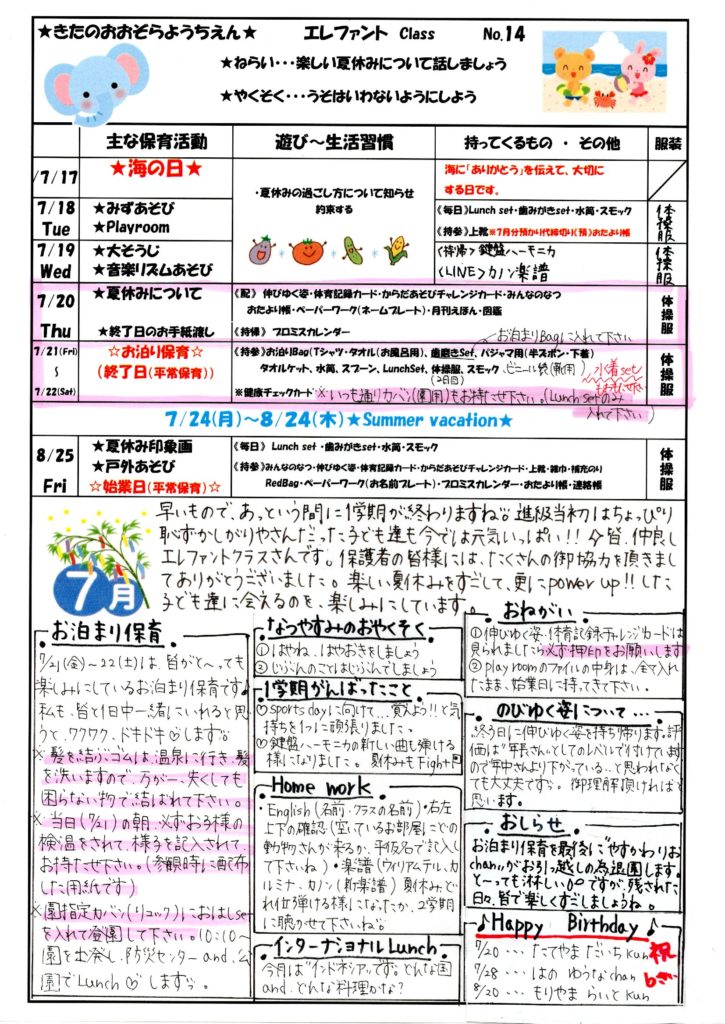 ★きたのおおぞらようちえん★ エレファント Class No.14
★ねらい・・・楽しい夏休みについて話しましょう
★やくそく・・・うそはいわないようにしよう
主な保育活動 遊び～生活習慣 持ってくるもの ・ その他 服装
/7/17 ★海の日★
海に「ありがとう」を伝えて、大切に
する日です。
・夏休みの過ごし方について知らせ
約束する
7/18 Tue
★みずあそび
★Playroom
《毎日》Lunch set・歯みがきset・水筒・スモック
《持参》上靴 ※7月分預かり代締切り(預)おたより帳
体操服
7/19 Wed
★大そうじ
★音楽リズムあそび
<持帰>鍵盤ハーモニカ
<LINE>カノン楽譜
体操服
7/20 Thu
★夏休みについて
★終了日のお手紙渡し
《配》 伸びゆく姿・体育記録カード・からだあそびチャレンジカード・みんなのなつ
おたより帳・ペーパーワーク(ネームプレート)・月刊えほん・図鑑
《持帰》 プロミスカレンダー
お泊まりBagに入れて下さい
体操服
7/21(Fri)
～
7/22(Sat)
☆お泊り保育☆
(終了日(平常保育))
《持参》お泊りBag(Tシャツ・タオル(お風呂用)、歯磨きSet、パジャマ用(半ズボン・下着)
タオルケット、水筒、スプーン、LunchSet、体操服、スモック、ビニール袋
(2日目)
水着set
※健康チェックカード ※いつも通りカバン(園用)もお持たせ下さい。(Lunch setのみ
入れて下さい)
体操服
7/24(月)～8/24(木)★Summer vacation★
8/25 Fri
★夏休み印象画
★戸外あそび
☆始業日(平常保育)☆
《毎日》 Lunch set ・歯みがきset・水筒・スモック
《持参》みんなのなつ・伸びゆく姿・体育記録カード・からだあそびチャレンジカード・上靴・雑巾・補充のり
RedBag・ペーパーワーク(お名前プレート)・プロミスカレンダー・おたより帳・連絡帳
体操服
7月
早いもので、あっという間に1学期が終わりますね。進級当初はちょっぴり
恥ずかしがりやさんだった子ども達も今では元気いっぱい!! 今皆、仲良し
エレファントクラスさんです。保護者の皆様には、たくさんの御協力を頂きまし
てありがとうございました。楽しい夏休みをすごして、更にpower up!!した
子ども達に会えるのを、楽しみにしています。
お泊まり保育
7/21(金)～22(土)は、皆がと～っても
楽しみにしているお泊まり保育です♪
私も、皆と1日中一緒にいれると思
うと、ワクワク、ドキドキ♡します
※髪を結ぶゴムは、温泉に行き、髪
を洗いますので、万が一、失くしても
困らない物で結ばれて下さい。
※当日(7/21)の朝、必ずお子様の
検温をされて、様子を記入されて、
お持たせ下さい。(参観時に配布
した用紙です)
※園指定カバン(リュック)におはしset
を入れて登園して下さい。10:10～
園を出発し、防災センター and、公
園でLunch♡します。
なつやすみのおやくそく
①はやね、はやおきをしましょう
②じぶんのことはじぶんでしましょう
1学期がんばったこと
♡sports dayに向けて…覚えよう!!と気
持ちを1つに頑張りました。
♡鍵盤ハーモニカの新しい曲も弾ける
様になりました。夏休みもFight!!
Home work
・English(名前・クラスの名前)・右左
上下の確認(空いているお部屋にどの
動物さんが来るか、平仮名で記入し
て下さいね)・楽譜(ウィリアムテル、カ
ルミナ、カノン(新楽譜) 夏休み、ど
れ位弾ける様になったか、2学期
に聴かせて下さいね。
インターナショナルLunch
今月は"インドネシア"です。どんな国
and、どんな料理かな?
おねがい
①伸びゆく姿・体育記録・チャレンジカードは
見られましたら必ず押印をお願いします
②play roomのファイルの中身は、全て入れ
たまま、始業日に持ってきて下さい。
のびゆく姿について…
終了日に伸びゆく姿を持ち帰ります。評
価は"年長さん"としてのレベルで付けています
ので年中さんより下がっている…と思われなくて
も大丈夫です。御理解頂ければと
思います。
おしらせ
お泊まり保育を最後に"やすかわりお
chan"がお引っ越しの為退園します。
と～っても淋しいですが、残された
日々、皆で楽しくすごしましょうね。
♪Happy Birthday♪
7/20 ・・・ たてやま だいち kun 祝
7/28 ・・・ はの ゆうな chan
8/20 ・・・ もりやま らいと kun